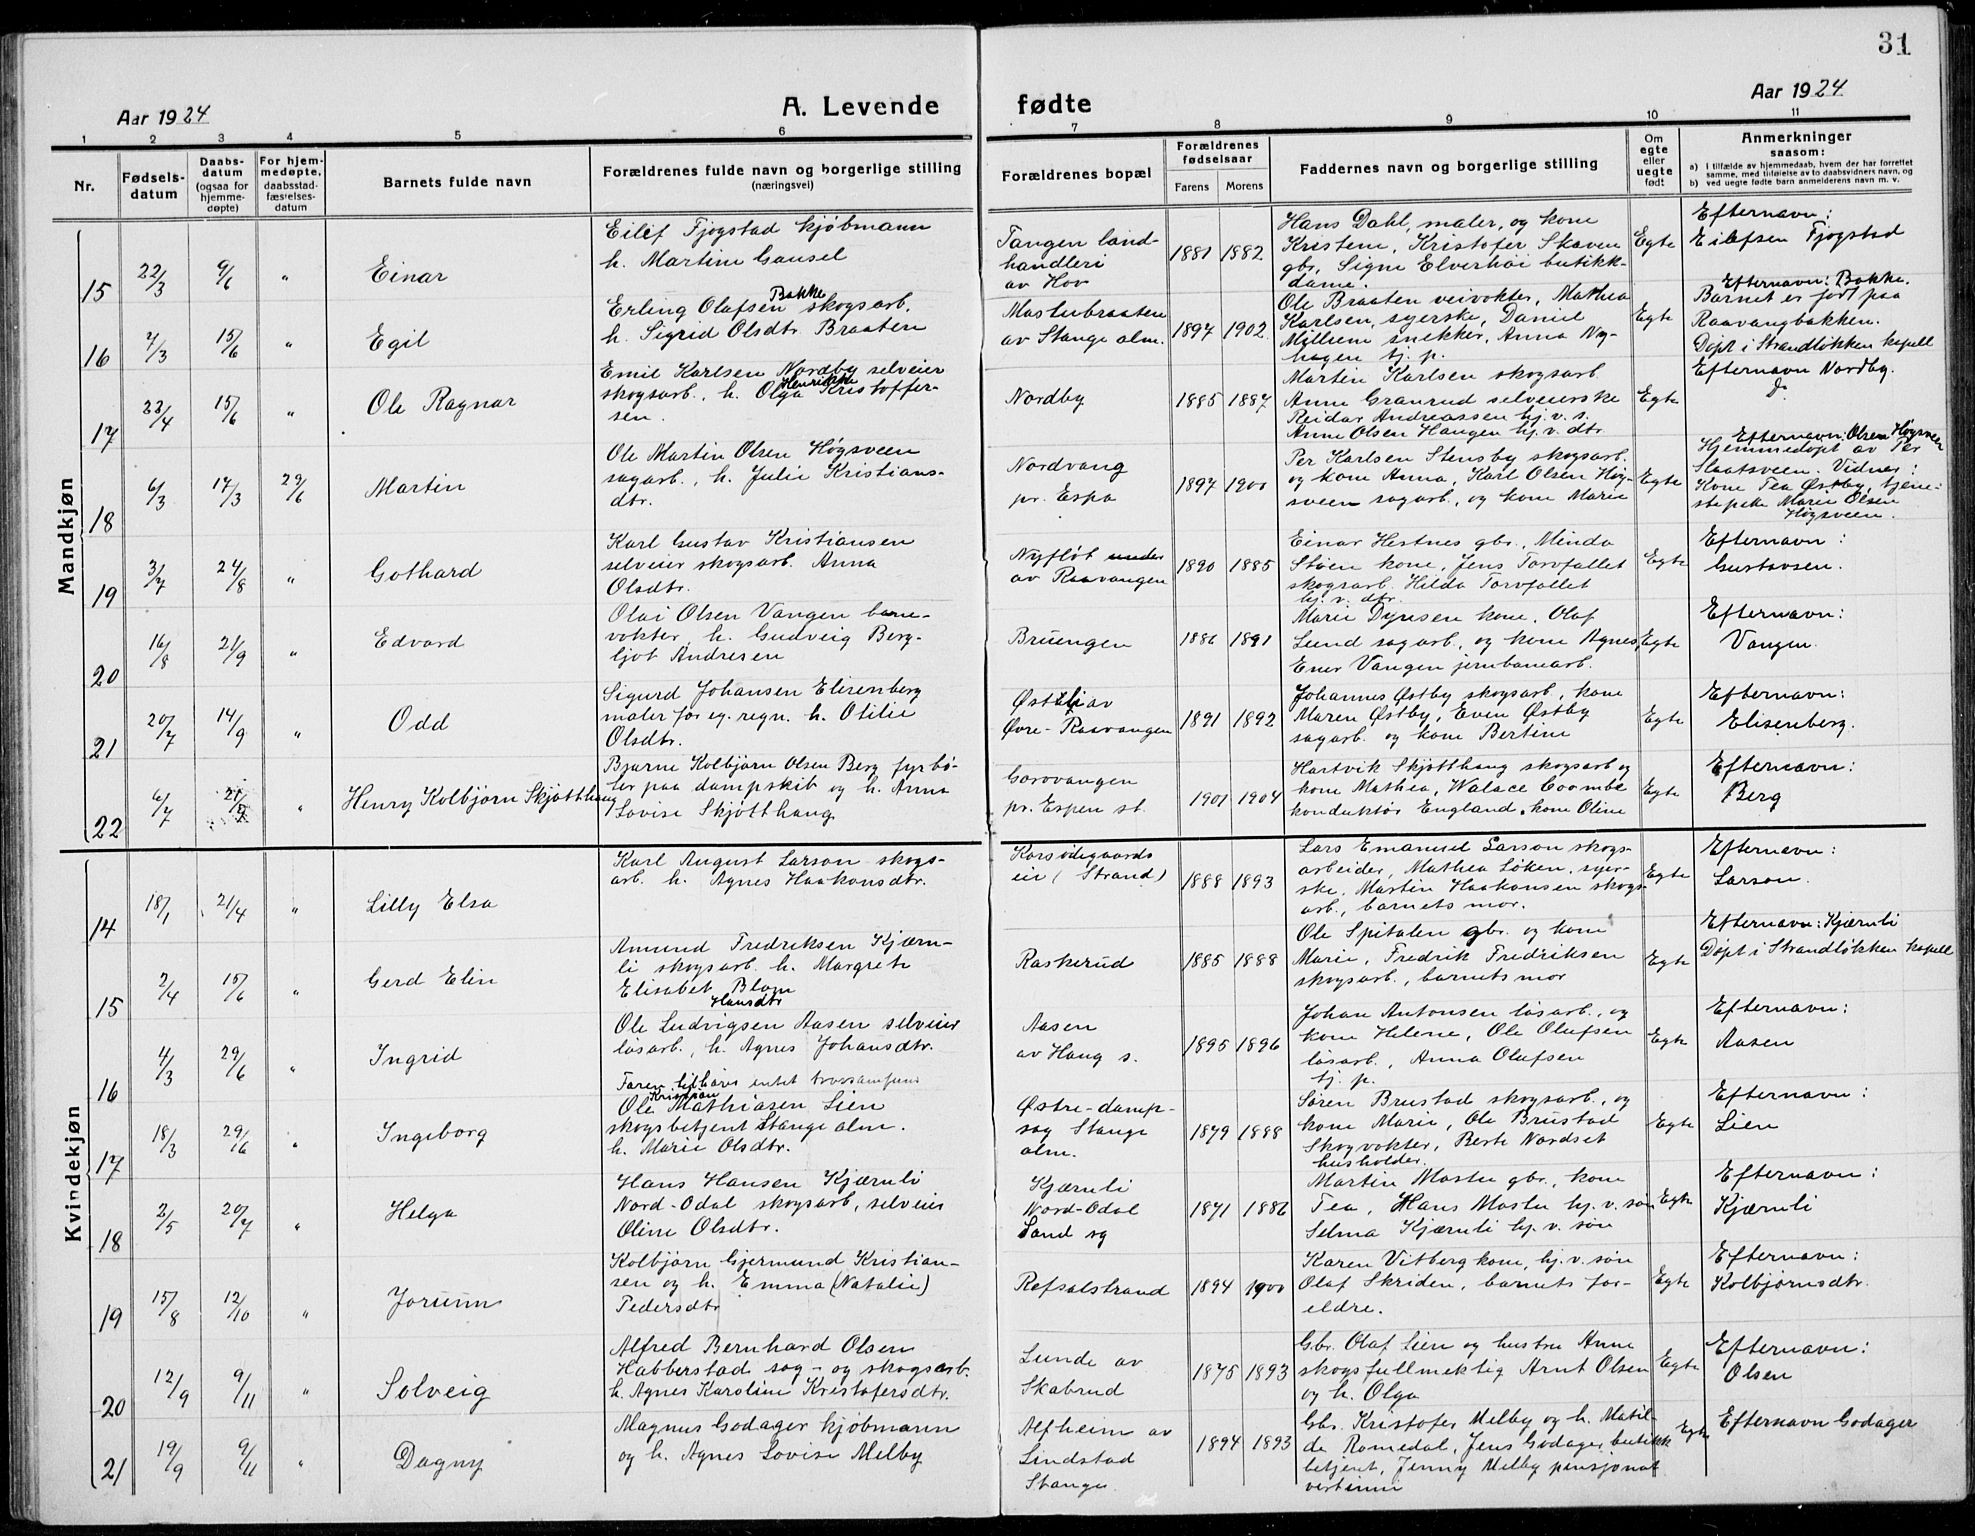 31
Aar 1924
A. Levende fødte
Aar 1924
1 2 3 4 5 6 7 8 9 10 11
Nr.
Fødselsdatum
Daabsdatum (ogsaa for hjemmedøpte)
For hjemmedøpte, daabsstadfæstelsesdatum
Barnets fulde navn
Forældrenes fulde navn og borgerlige stilling
(næringsvei)
Forældrenes bopæl
Forældrenes fødselsaar
Farens Morens
Faddernes navn og borgerlige stilling
Om egte eller uegte født
Anmerkninger
saasom:
a) i tilfælde av hjemmedaab, hvem der har forrettet samme, med tilføielse av to daabsvidners navn, og
b) ved uegte fødte barn anmelderens navn m. v.
Mandkjøn
15 22/3 9/6 " Einar
Eilif Fjogstad kjøbmann
h. Martine Gausel
Tangen land-
handleri
av Hov
1881 1882
Hans Dahl, maler, og kone
Kristene, Kristofer Skaven
gbr, Signe Elverhöi butikk-
dame.
Egte
Efternavn:
Eilefsen Fjogstad
16 2/3 15/6 " Egil
Erling Olafsen Bakke skogsarb.
h. Sigrid Olsdtr. Braaten
Mostubraaten
av Stange alm.
1897 1902
Ole Braaten veivokter, Mathea
Karlsen, syerske, Daniel
Milliem snekker, Anna Ny-
hagen tj. p.
Egte
Efternavn: Bakke.
Barnet er født paa
Raavangbakken.
Døpt i Strandløkken kapell
17 23/4 15/6 " Ole Ragnar
Emil Karlsen Nordby selveier
skogsarb., h. Olga Henrikke Kristoffer-
sen.
Nordby
1885 1887
Martin Karlsen skogsarb
Anne Granrud selveierske
Reidar Andreassen hj. v. s.
Anne Olsen Haugen hj. v. dtr
Egte
Efternavn Nordby.
Do
18 6/3 17/3 29/6 Martin
Ole Martin Olsen Høgsveen
sagarb., h. Julie Kristians-
dtr.
Nordvang
pr. Espa
1897 1900
Per Karlsen Stensby skogsarb.
og kone Anna, Karl Olsen Høg-
sveen sagarb., og kone Marie
Egte
Efternavn: Olsen Høgsveen
Hjemmedøpt av Per
Slaatsveen. Vidner:
Kone Tea Østby, tjene-
stepike Marie Olsen
Høgsveen.
19 3/7 24/8 " Gothard
Karl Gustav Kristiansen
selveier skogsarb. Anna
Olsdtr.
Nyfløt under
av Raavangen
1890 1885
Einar Hestnes gbr., Minda
Støen kone, Jens Torvfallet
skogsarb. Hilda Torvfallet
hj. v. dtr.
Egte
Efternavn:
Gustavsen.
20 16/8 21/9 " Edvard
Olai Olsen Vangen bane-
vokter, h. Gudveig Berg-
ljot Andresen
Bruengen
1886 1891
Marie Dyresen kone, Olaf
Lund sagarb., og kone Agnes,
Ener Vangen jernbanearb.
Egte
Efternavn:
Vangen.
21 20/7 14/9 " Odd
Sigurd Johansen Elisenberg
maler for eg. regn. h. Otilie
Olsdtr.
Østli av
Øvre-Raavangen
1891 1892
Johannes Østby skogsarb., kone
Maren Østby, Even Østby
sagarb. og kone Bertine
Egte
Efternavn:
Elisenberg.
22 6/7 " Henry Kolbjørn Skjøtthaug
Bjarne Kolbjørn Olsen Berg fyrbø-
ter paa dampskib og h. Anna
Lovise Skjøtthaug
Garovangen
pr. Espen st.
1901 1904
Hartvik Skjøtthaug skogsarb og
kone Mathea, Walace Coombe
konduktør England, kone Oline
Egte
Efternavn:
Berg
Kvindekjøn
14 18/1 21/4 " Lilly Elsa
Karl August Larson skogs-
arb. h. Agnes Haakonsdtr.
Korsødegaards
eie (Strand)
1888 1893
Lars Emanuel Larson skogs-
arbeider, Mathea Løken, syer-
ske, Martin Haakonsen skogs-
arb., barnets mor.
Egte
Efternavn:
Larson.
15 2/4 15/6 " Gerd Elin
Amund Fredriksen Kjærn-
li skogsarb. h. Margrete
Elisabet Blom
Hansdtr
Raskerud
1885 1888
Ole Spitalen gbr. og kone
Marie, Fredrik Fredriksen
skogsarb., barnets mor
Egte
Efternavn: Kjærnli
Døpt i Strandløkken kapell
16 4/3 29/6 " Ingrid
Ole Ludvigsen Aasen selveier
løsarb., h. Agnes Johansdtr.
Faren tilhører intet trossamfund
Aasen
av Haug s.
1895 1896
Johan Antonsen løsarb., og
kone Helene, Ole Olufsen
løsarb., Anna Olufsen
tj. p.
Egte
Efternavn:
Aasen
17 18/3 29/6 " Ingeborg
Ole Kristian Mathiasen Lien
skogsbetjent Stange alm.
h. Marie Olsdtr.
Østre-damp-
sag Stange
alm.
1879 1888
Søren Brustad skogsarb., og
kone Marie, Ole Brustad
Skogvokter, Berte Nordset
husholder.
Egte
Efternavn:
Lien
18 2/5 20/7 " Helga
Hans Hansen Kjærnli
Nord-Odal skogsarb, selveier
Oline Olsdtr.
Kjærnli
Nord-Odal
Sand sg
1871 1886
Martin Mostu gbr., kone
Tea, Hans Mostu hj. v. søn
Selma Kjærnli hj. v. søn
Egte
Efternavn:
Kjærnli
19 15/8 12/10 " Jorunn
Kolbjørn Gjermund Kristian-
sen og h. Emma (Natalie)
Pedersdtr
Refsalstrand
1894 1900
Karen Vitberg kone, hj. v. søn
Olaf Skriden, barnets for-
eldre.
Egte
Efternavn:
Kolbjørnsdtr.
20 12/9 9/11 " Solveig
Alfred Bernhard Olsen
Habberstad sag- og skogsarb.
h. Agnes Karoline Kristofersdtr.
Lunde av
Skabrud
1875 1893
Gbr. Olaf Lien og hustru Anne
skogsfullmektig Arnt Olsen
og h. Olga
Egte
Efternavn:
Olsen
21 19/9 9/11 " Dagny
Magnus Godager kjøbmann
og h. Agnes Lovise Melby
Alfheim av
Lindstad
Stange
1894 1893
Gbr. Kristofer Melby og h. Matil-
de Romedal, Jens Godager, butikk
betjent, Jenny Melby pensjonat
vertinne
Egte
Efternavn Godager